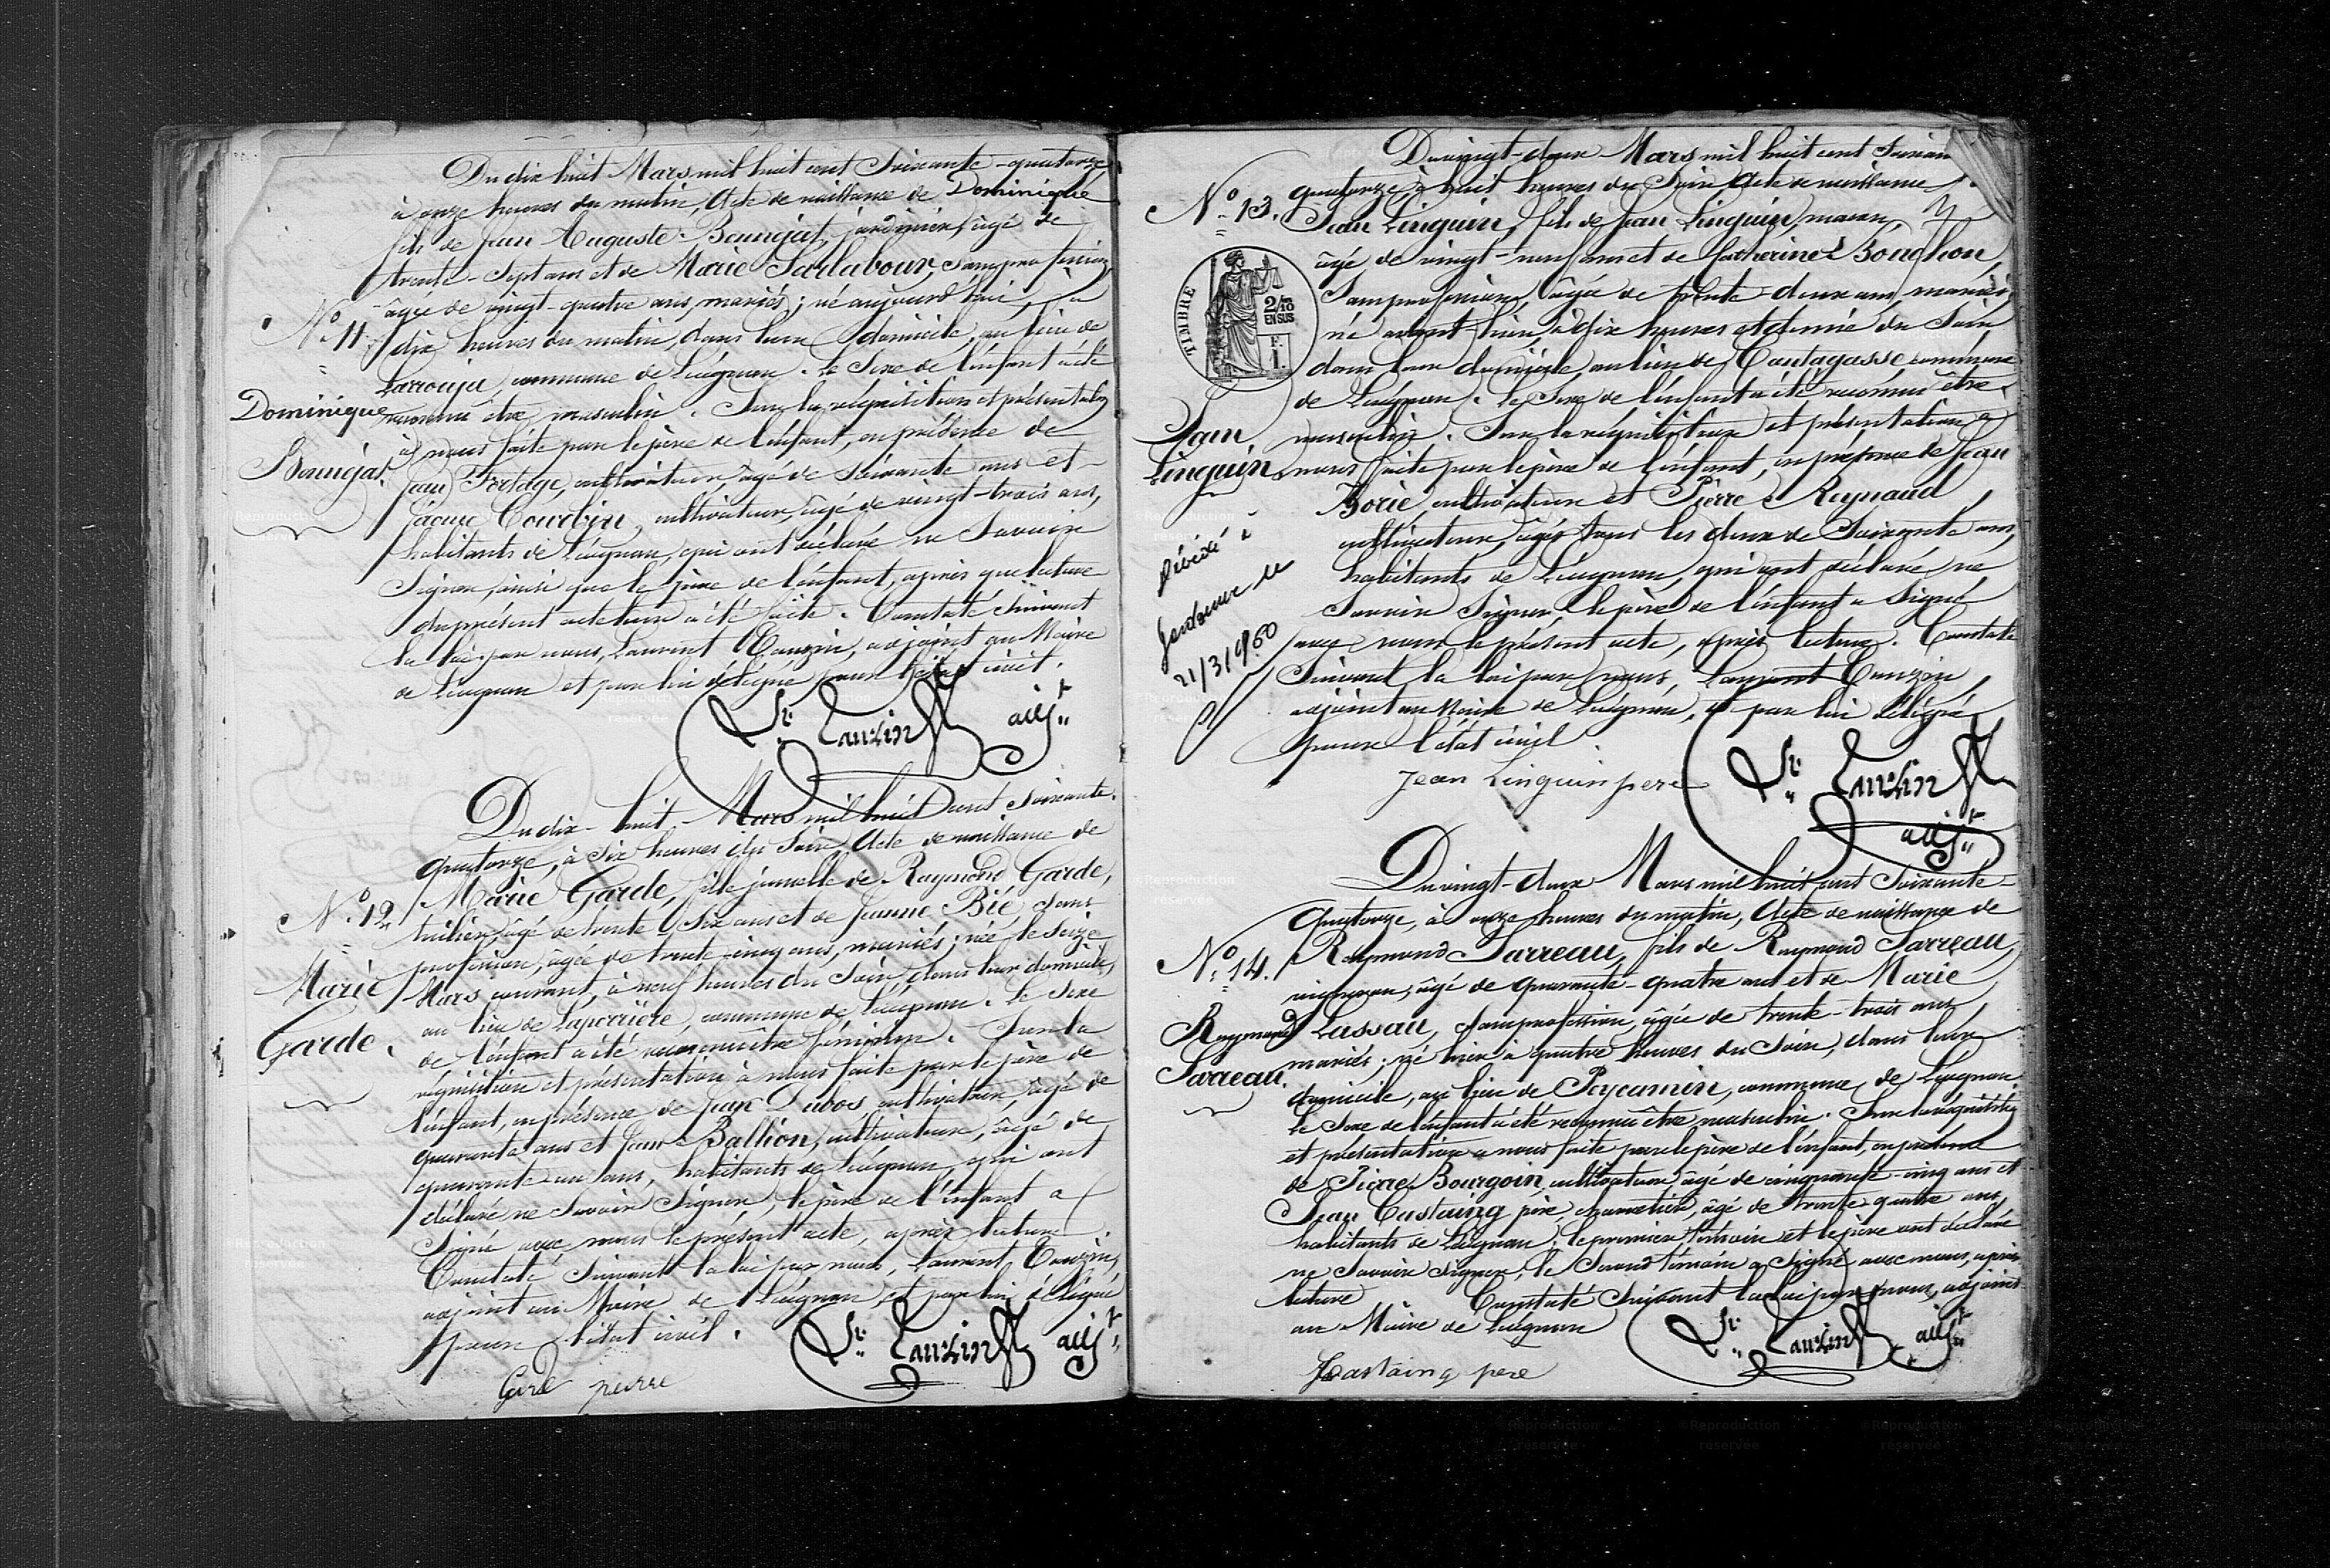 Du dix huit Mars mil huit cent soixante-quatorze
à onze heures du matin, Acte de naissance de Dominique
fils de Jean Auguste Bonnejat, jardinier, âgé de
trente-sept ans et de Marie Sarlabour, sans profession,
âgée de vingt-quatre ans, mariés; né aujourd'hui, à
N° 11
dix heures du matin, dans leur domicile, au lieu de
Larrouja, commune de Luignan. Le sexe de l'enfant a été
Dominique
Bonnejat.
reconnu être masculin. Sur la réquisition et présentation
à nous faite par le père de l'enfant, en présence de
Jean Fortage, cultivateur, âgé de soixante ans et
Jacques Courbin, cultivateur, âgé de vingt-trois ans,
habitants de Luignan, qui ont déclaré ne savoir
signer, ainsi que le père de l'enfant, après que lecture
du présent acte leur a été faite. Constaté suivant
la loi par nous, Laurent Cauzin, adjoint au Maire
de Luignan et par lui délégué pour l'état civil.
Lt. Cauzin adjt
Du dix-huit Mars mil huit cent soixante-
quatorze, à six heures du soir, Acte de naissance de
N° 12
Marie Garde, fille jumelle de Raymond Garde,
tuilier, âgé de trente six ans et de Jeanne Bié, sans
profession, âgée de trente-cinq ans, mariés; née le seize
Marie
Garde.
Mars courant, à neuf heures du soir, dans leur domicile,
au lieu de Laperrière, commune de Luignan. Le sexe
de l'enfant a été reconnu être féminin. Sur la
réquisition et présentation à nous faite par le père de
l'enfant, en présence de Jean Dubos, cultivateur, âgé de
quarante ans et Jean Ballion, cultivateur, âgé de
quarante un ans, habitants de Luignan, qui ont
déclaré ne savoir signer, le père de l'enfant a
signé avec nous le présent acte, après lecture.
Constaté suivant la loi par nous, Laurent Cauzin,
adjoint au Maire de Luignan et par lui délégué
pour l'état civil.
Lt. Cauzin adjt
Du vingt-deux Mars mil huit cent
N° 13.
quatorze, à huit heures du soir, Acte de naissance
Jean Linguin, fils de Jean Linguin, maçon,
âgé de vingt-neuf ans et de Catherine Bouchon,
sans profession, âgée de trente-deux ans, mariés;
né avant-hier, à dix heures et demie du soir
dans leur domicile, au lieu de Cantagasse commune
de Luignan. Le sexe de l'enfant a été reconnu être
TIMBRE
2/10
EN SUS
F.
1.
Jean
Linguin
masculin. Sur la réquisition et présentation à
nous faite par le père de l'enfant, en présence de Jean
Borie, cultivateur et Pierre Reynaud,
cultivateur, âgés tous les deux de soixante ans,
habitants de Luignan, qui ont déclaré ne
savoir signer, le père de l'enfant a signé
avec nous le présent acte, après lecture. Constaté
suivant la loi par nous, Laurent Cauzin,
adjoint au Maire de Luignan, et par lui délégué
pour l'état civil.
Décédé à
le
21/3/1960
Jean Linguin pere
Lt. Cauzin
adjt
Du vingt-deux Mars mil huit cent soixante-
quatorze, à onze heures du matin, Acte de naissance de
N° 14.
Raymond Sarreau, fils de Raymond Sarreau,
vigneron, âgé de quarante-quatre ans et de Marie
Raymond
Sarreau.
Lassau, sans profession, âgée de trente-trois ans,
mariés; né hier à quatre heures du soir, dans leur
domicile, au lieu de Peycamin, commune de Luignan
Le sexe de l'enfant a été reconnu être masculin. Sur la réquisition
et présentation a nous faite par le père de l'enfant, en présence
de Pierre Bourgoin, cultivateur, âgé de cinquante-cinq ans et
Jean Castaing père, charretier, âgé de trente-quatre ans,
habitants de Luignan; le premier témoin et le père ont déclaré
ne savoir signer, le second témoin a signé avec nous, après
lecture Constaté suivant la loi par nous, adjoint
au Maire de Luignan
Lt. Cauzin adjt
Castaing pere